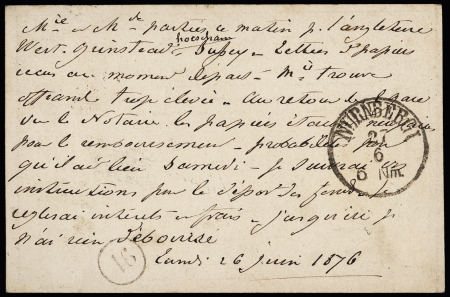 Mr et Me partis ce matin p. l'angleterre
West. Grinstead horsham Sussex - Lettres & papiers
recus au moment départ - Mr trouve
offrande trop élevée - Au retour de la gare
vu le Notaire. les papiers étaient
pour le remboursement - probabilités pour
qu'il ait lieu Samedi - je suivrai les
instructions pour le dépôt des fonds &
reglerai intérêts & frais - jusqu'ici je
n'ai rien déboursé
Lundi 26 juin 1876
NÜRNBERG
27
6
5 Nm.
31